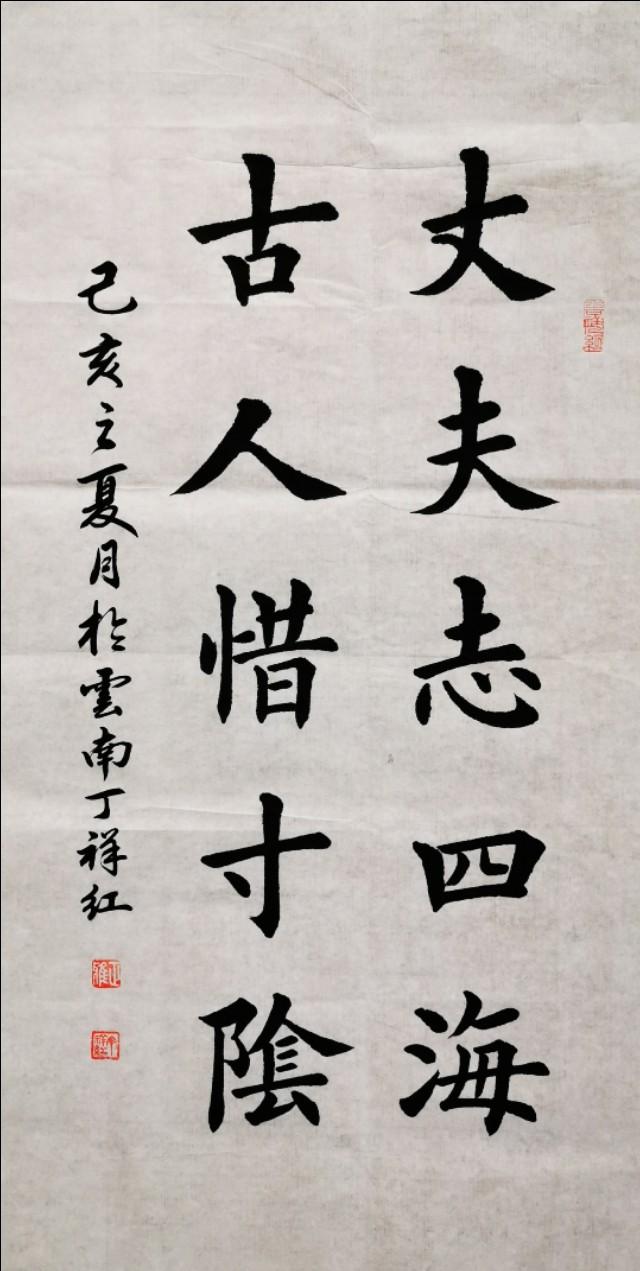 丈夫志四海
古人惜寸陰
己亥之夏月於雲南丁祥红